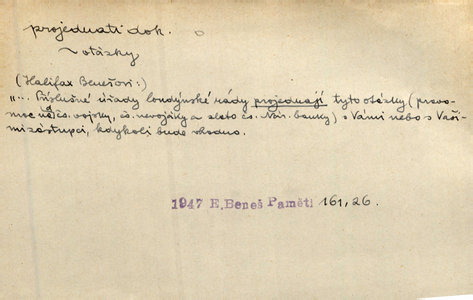 projednati dok.
~ otázky
(Halifax Benešovi:)
"... Příslušné úřady londýnské vlády projednají tyto otázky (pravo-
moc nad čs. vojsky, čs. nevojáky a zlato čs. Nár. banky) s Vámi nebo s Vaši-
mi zástupci, kdykoli bude vhodno.
1947 E. Beneš Paměti 161, 26.